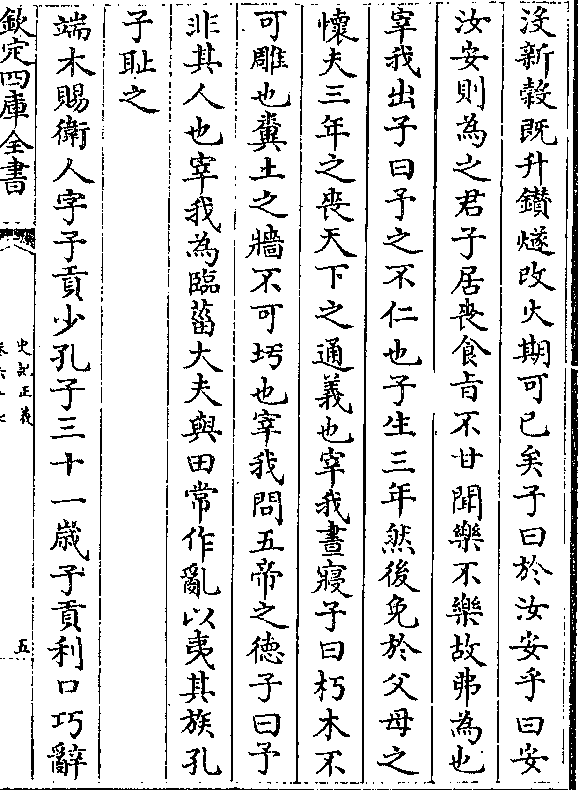 沒新榖既升鑚燧改火期可已矣子曰於汝安乎曰安
汝安則為之君子居喪食㫖不甘聞樂不樂故弗為也
宰我出子曰予之不仁也子生三年然後免於父母之
懷夫三年之喪天下之通義也宰我晝寢子曰朽木不
可雕也糞土之牆不可圬也宰我問五帝之徳子曰予
非其人也宰我為臨菑大夫與田常作亂以夷其族孔
子耻之
端木賜衛人字子貢少孔子三十一嵗子貢利口巧辭
欽定四庫全書
史記正義
五